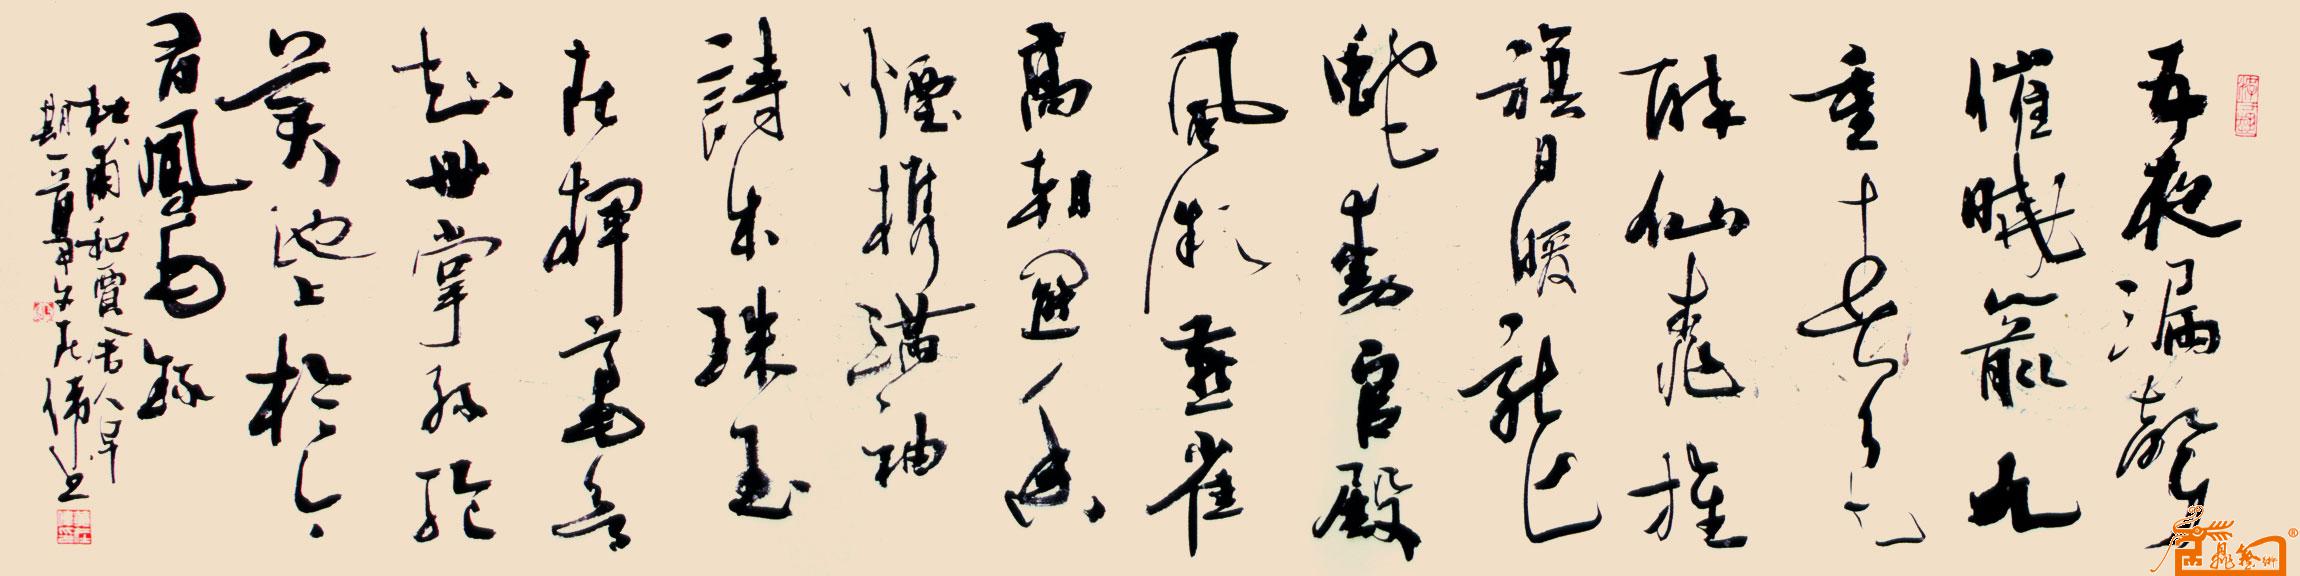 五夜漏聲
催曉箭九
重春色
醉仙桃旌
旗日暖龍
蛇動宮殿
風微燕雀
高朝罷香
煙携滿袖
詩成珠玉
在揮毫欲
知世掌絲綸
美池上於今
有鳳毛錄
杜甫和賈舍人早
期一首偉書